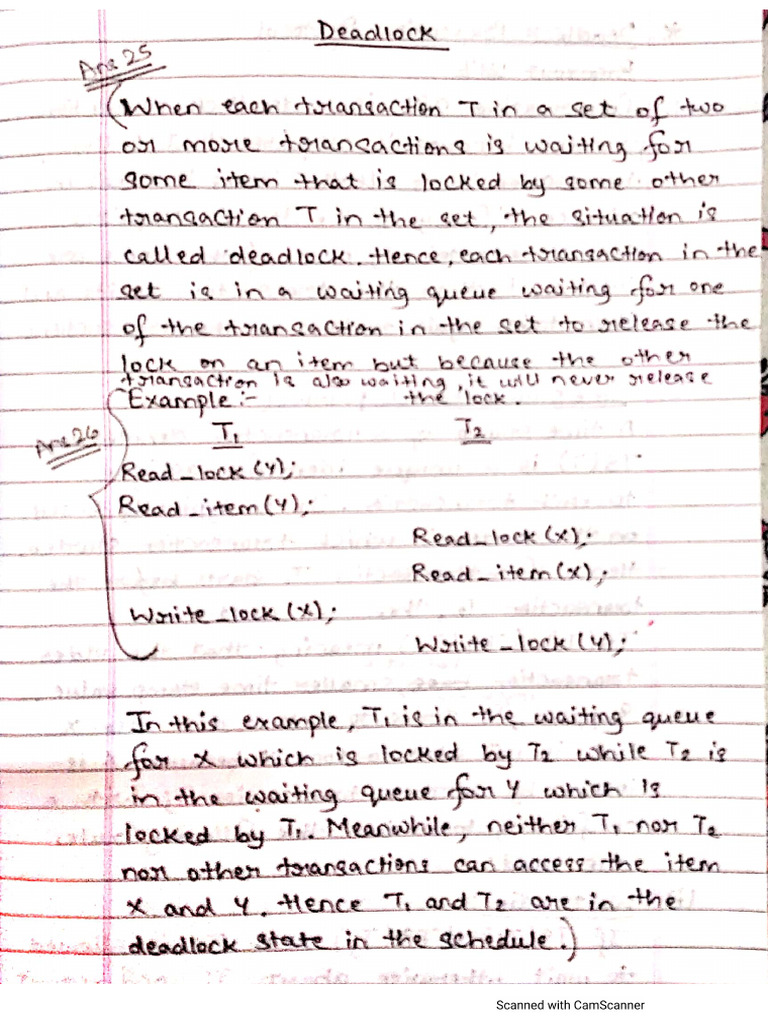 Deadlock
Ans 25
(When each transaction T in a set of two
or more transactions is waiting for
some item that is locked by some other
transaction T in the set, the situation is
called deadlock. Hence, each transaction in the
set is in a waiting queue waiting for one
of the transaction in the set to release the
lock on an item but because the other
transaction is also waiting, it will never release
the lock.
Example:-
Ans 26
T1 T2
Read_lock (Y);
Read_item (Y);
Read_lock (X);
Read_item (X);
Write_lock (X);
Write_lock (Y);
In this example, T1 is in the waiting queue
for X which is locked by T2 while T2 is
in the waiting queue for Y which is
locked by T1. Meanwhile, neither T1 nor T2
nor other transactions can access the item
X and Y. Hence T1 and T2 are in the
deadlock state in the schedule.)
Scanned with CamScanner